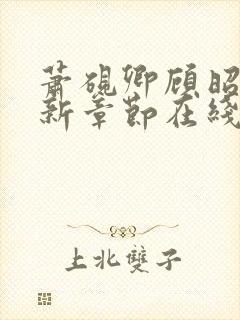 萧砚卿顾昭
新章节在线
上北双子